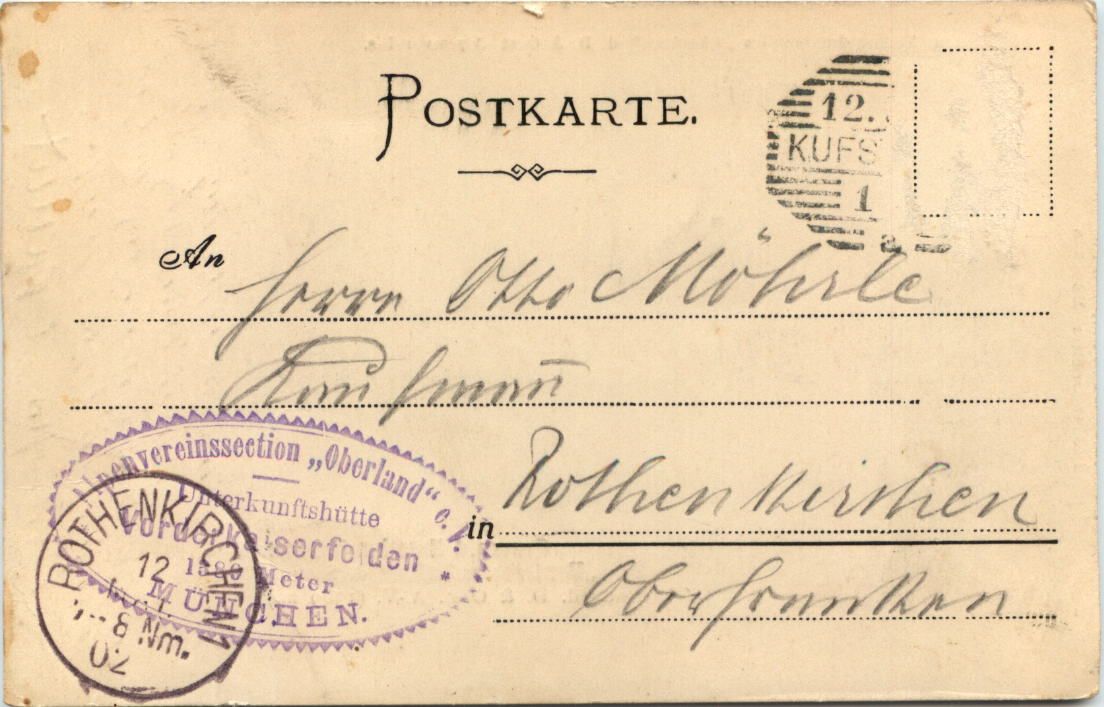 POSTKARTE.
12.
KUFS
1
a
An
Herrn Otto Möhrle
Kaufmann
Alpenvereinssection „Oberland“ e. V.
Unterkunftshütte
Vorderkaiserfelden
Meter
MÜNCHEN.
ROTHENKIRCHEN 1
12
8 Nm.
02
in
Rothenkirchen
Oberfranken